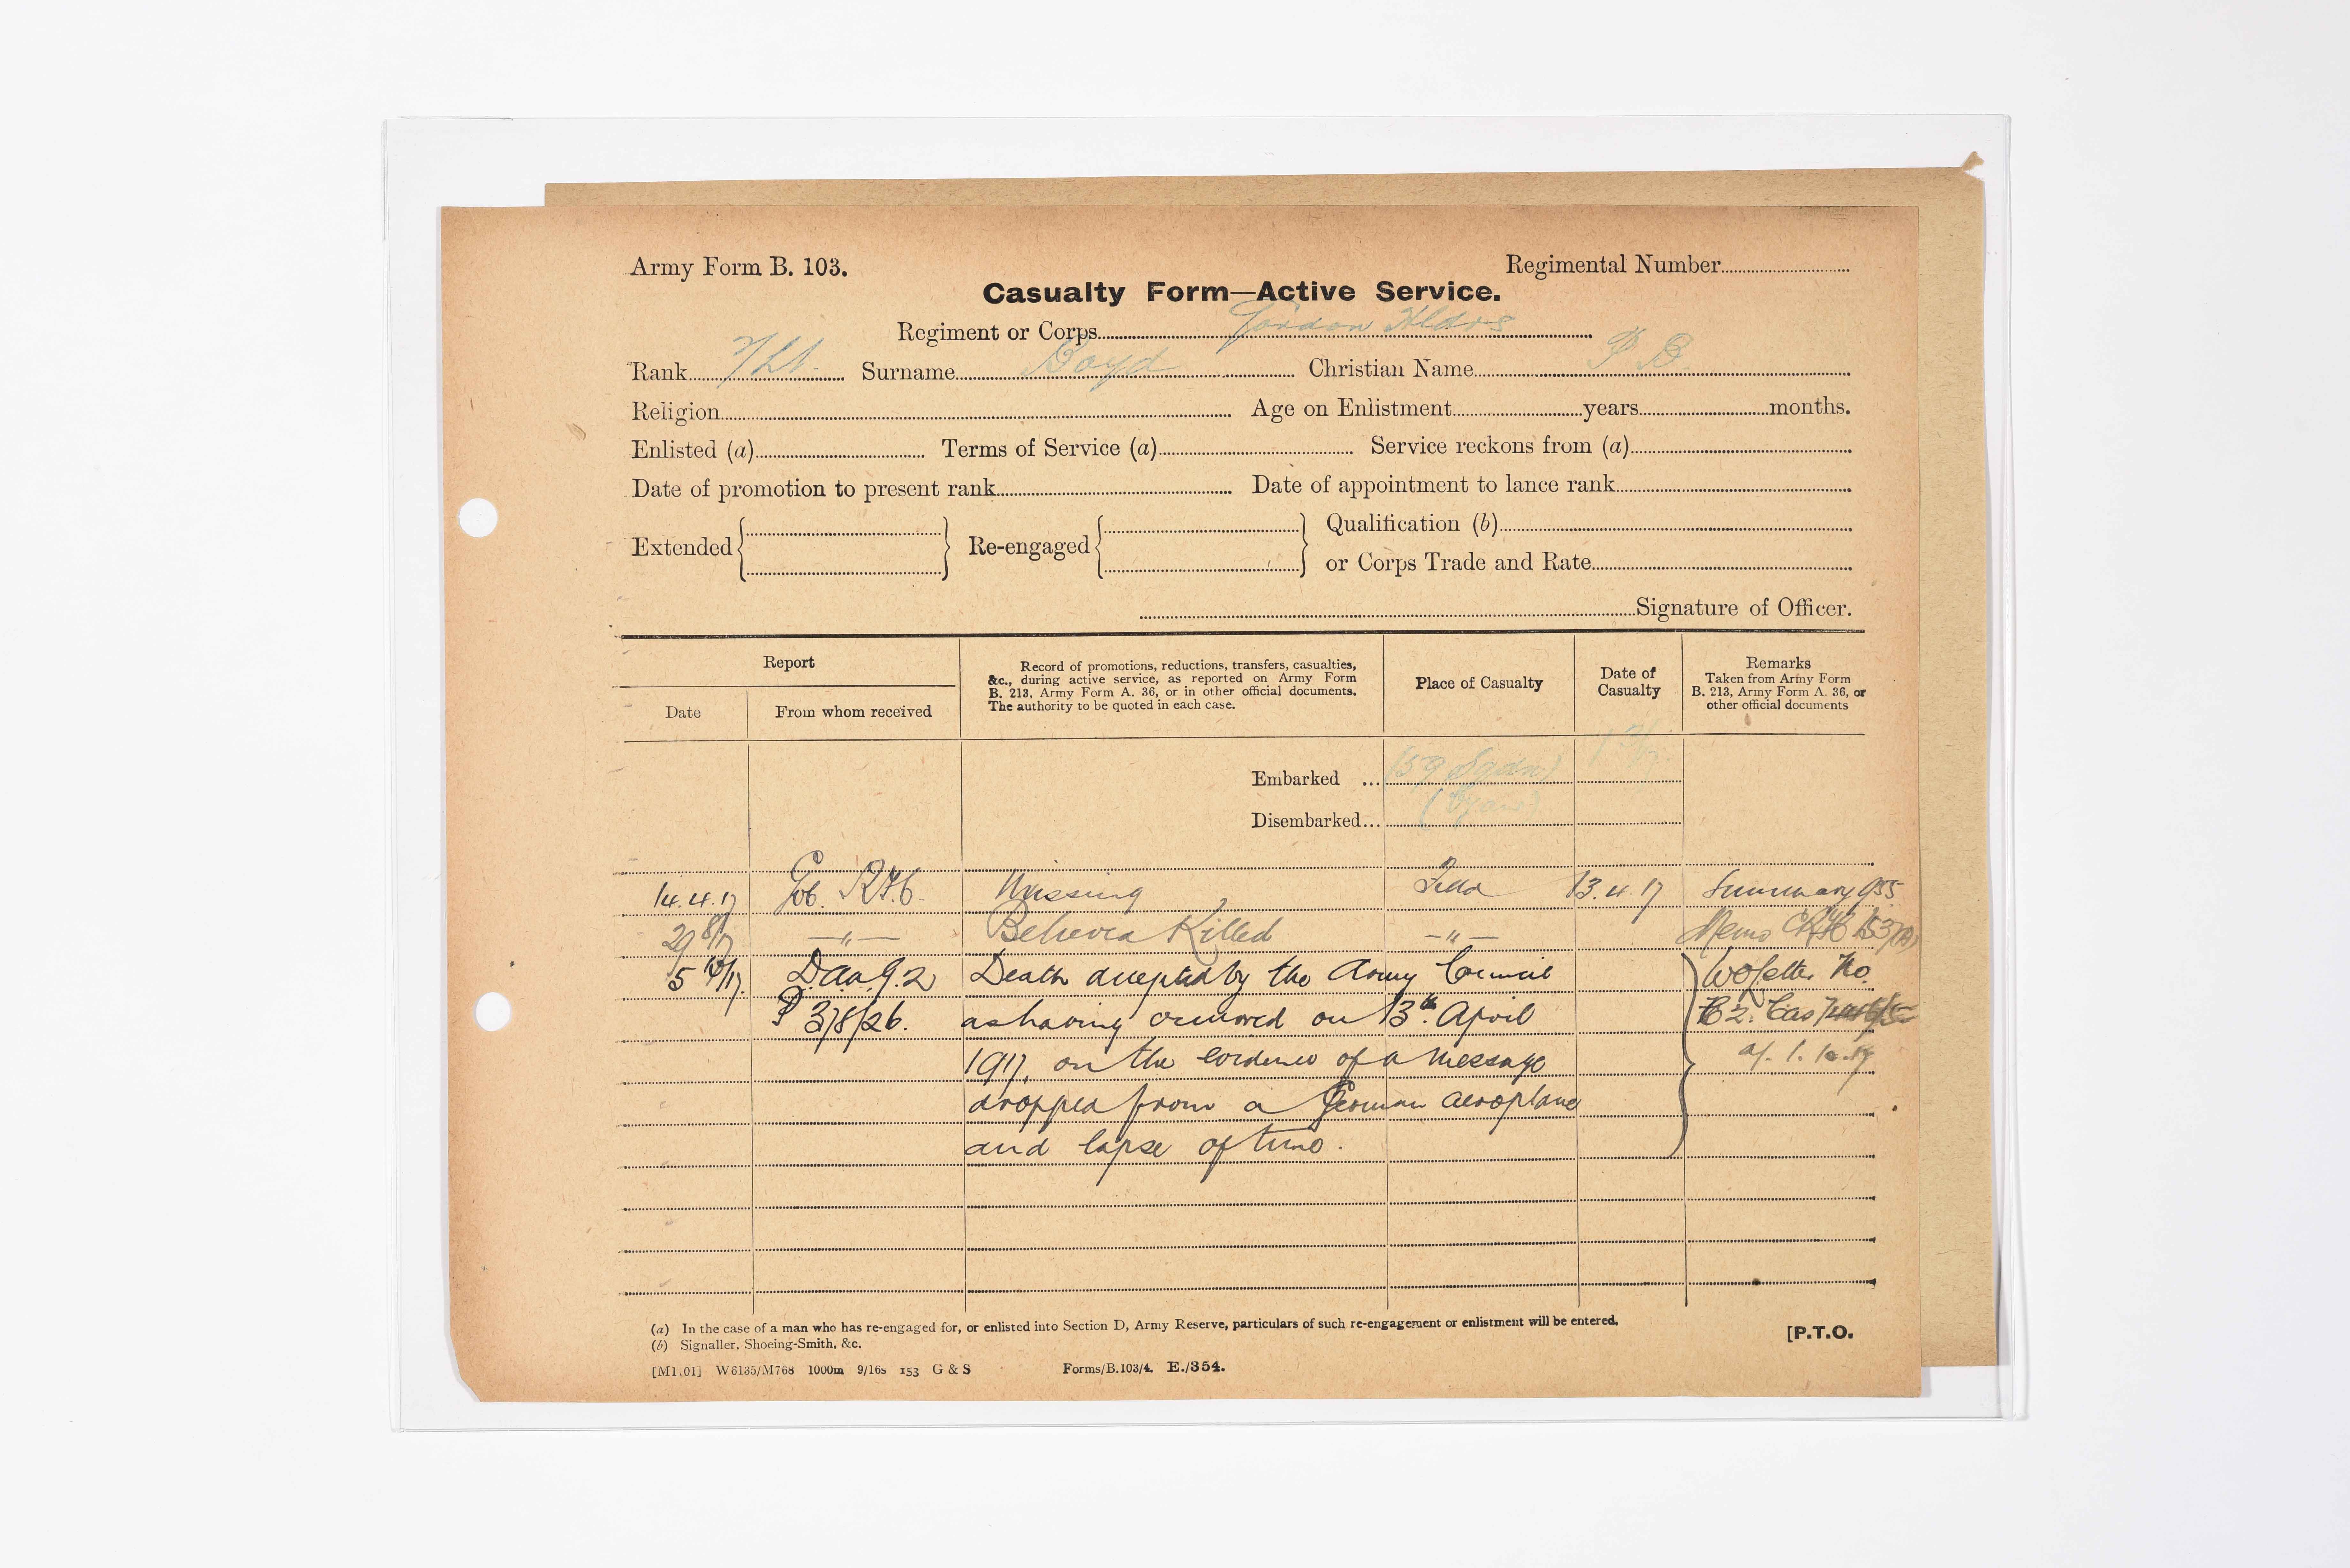 Army Form B. 103. Regimental Number
Casualty Form—Active Service.
Regiment or Corps Gordon Hldrs
Rank T/Lt. Surname Boyd Christian Name P. B.
Religion Age on Enlistment years months.
Enlisted (a) Terms of Service (a) Service reckons from (a)
Date of promotion to present rank Date of appointment to lance rank
Extended Re-engaged Qualification (b)
or Corps Trade and Rate
Signature of Officer.
Report
Date From whom received
Record of promotions, reductions, transfers, casualties,
&c., during active service, as reported on Army Form
B. 213, Army Form A. 36, or in other official documents.
The authority to be quoted in each case.
Place of Casualty
Date of
Casualty
Remarks
Taken from Army Form
B. 213, Army Form A. 36, or
other official documents
Embarked ... (59 Sqdn)
Disembarked...
14.4.17 Missing Field 13.4.17 Summary 955
29 8/17 —"— Believed Killed —"— Memo
5 10/17. Death accepted by the Army Council WO letter No.
P 3/8/26. as having occurred on 13th. April
1917, on the evidence of a message
dropped from a German aeroplane
and lapse of time.
(a) In the case of a man who has re-engaged for, or enlisted into Section D, Army Reserve, particulars of such re-engagement or enlistment will be entered.
(b) Signaller, Shoeing-Smith, &c.
[P.T.O.
[M1.01] W6135/M768 1000m 9/16s 153 G & S Forms/B.103/4. E./354.